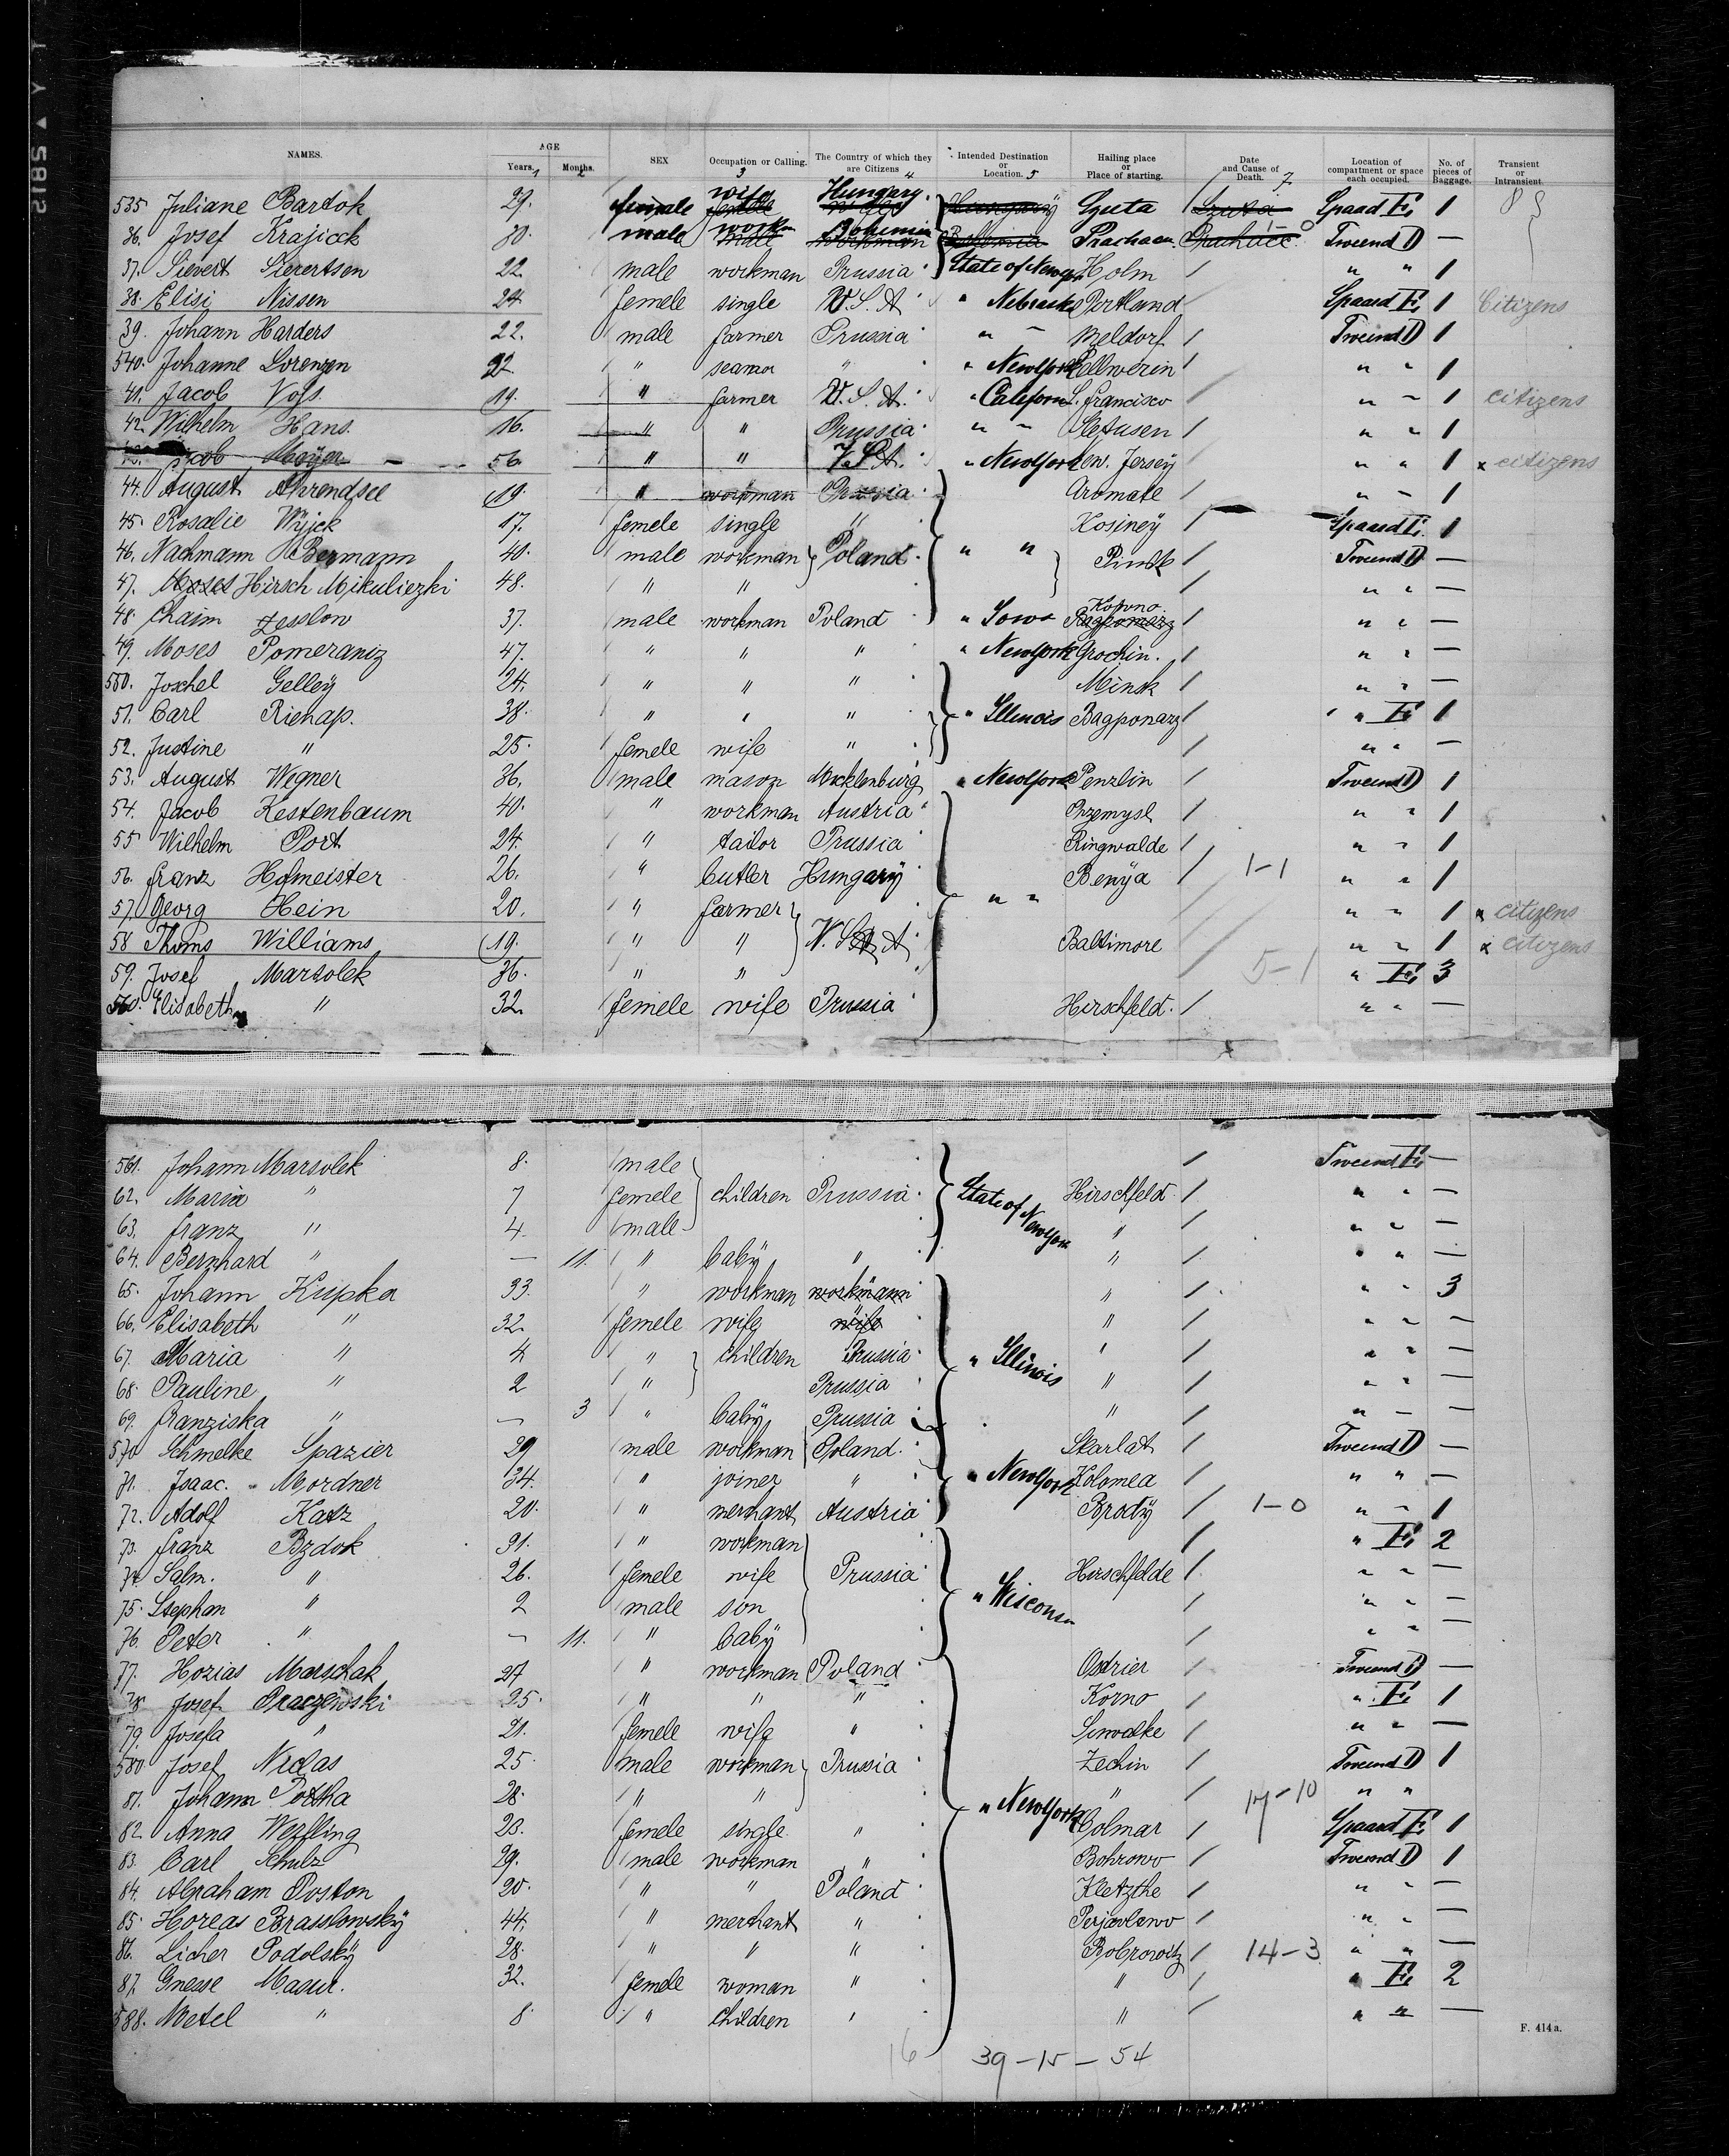 NAMES. AGE Years. Months. SEX Occupation or Calling. The Country of which they are Citizens Intended Destination or Location. Hailing place or Place of starting. Date and Cause of Death. Location of compartment or space each occupied. No. of pieces of Baggage. Transient or Intransient.
1 2 3 4 5 7
535 Juliane Bartok 29. female wife Hungary. Hungary Szuta Szuta Spaard E. 1
36. Josef Krajicek 30. male workm Bohemia workman Bohemia Prachaen Prachaen Tweend D —
37. Sievert Sierertsen 22 male workman Prussia State of Newyk Holm / " " 1
38. Elisi Nissen 24 femele single U.S.A. " Nebraska Portland Spaard E. 1 Citizens
39. Johann Harders 22. male farmer Prussia " " Meldorf / Tweend D 1
540. Johanne Lorenzen 22. " seaman " " Newyork Pellwerin / " " 1
41. Jacob Vojs 19. " farmer U.S.A. " Californ S. francisco " " 1 citizens
42. Wilhelm Hans. 16. " " Prussia " " Hetusen / " " 1
Jacob Meyer 56. " " U.S.A. " Newyork New. Jersey " " 1 x citizens
44. August Ahrendsee 19. " workman Prussia Aromate / " " 1
45. Rosalie Wyjck 17. femele single " Kosiney / Spaard E. 1
46. Nachmann Bermann 40. male workman Poland " " Pinsk / Tweend D —
47. Moses Hirsch Mikuliezki 48. " " / " " —
48. Chaim Zesslow 37. male workman Poland " Iowa Kowno Bagponarz / " " —
49. Moses Pomeraniz 47. " " " " Newyork Grochin. / " " —
550. Joschel Gelley 24. " " " Minsk / " " —
51. Carl Riehap. 38. " " " " Illinois Bagponarz / " E. 1
52. Justine " 25. femele wife " / " " —
53. August Wegner 36. male mason Mecklenburg " Newyork Penzlin / Tweend D 1
54. Jacob Kestenbaum 40. " workman Austria Przemysl / " " 1
55 Wilhelm Port 24. " tailor Prussia Ringwalde / " " 1
56. franz Hofmeister 26. " Cutler Hungary Benya / 1-1 " " 1
57. Georg Hein 20. " farmer " " " " 1 x citizens
58 Thoms Williams 19. " " U.S.A. Baltimore " " 1 x citizens
59. Josef Marsolek 36. " " 5-1 " E. 3
560. Elisabeth " 32. femele wife Prussia Hirschfeld. / " " —
561. Johann Marsolek 8. male / Tweend E. —
62. Maria " 7 femele children Prussia State of Newyork Hirschfeld / " " —
63. franz " 4 male " / " " —
64. Bernhard " — 11. " baby " " / " " —
65. Johann Kupka 33. " workman workmann " / " " 3
66. Elisabeth " 32. femele wife wife " / " " —
67. Maria " 4 " children Prussia " Illinois " / " " —
68. Pauline " 2 " Prussia " / " " —
69. franziska " — 3 " baby Prussia " / " — —
570 Schmelke Spazier 29 male workman Poland. Skarlat / Tweend D —
71. Isaac. Mordner 34. " joiner " " Newyork Kolomea / " " —
72. Adolf Katz 20. " merchant Austria Brody / 1-0 " " 1
73. franz Bzdok 31. " workman / " E. 2
74. Salm. " 26. femele wife Prussia Hirschfelde / " " —
75. Stephan " 2 male son " Wisconsn / " " —
76. Peter " — 11. " baby / " " —
77. Hozias Marschak 27 " workman Poland Ostrier / Tweend D —
78 Josef Draczewski 25. " " " Korno / " E. 1
79. Josefa " 21. femele wife " Suwalke / " " —
580. Josef Nidas 25. male workman Prussia Zechin / Tweend D 1
81. Johann Portha 28. " " " Newyork " / 17-10 " "
82. Anna Werfling 20. femele single " Colmar / Spaard E. 1
83. Carl Schulz 29. male workman " Bohrowo / Tweend D 1
84. Abraham Poston 20. " " Poland Kletzthe / " " —
85. Horeas Brasslowsky 44. " merchant " Perjavlawo / " " —
86. Licher Podolsky 28. " " " Bobrowitz / 14-3 " " —
87. Gnesse Masur. 32. femele woman " " / " E. 2
588. Metel " 8 " children " " / " " —
16 39-15-54
F. 414a.